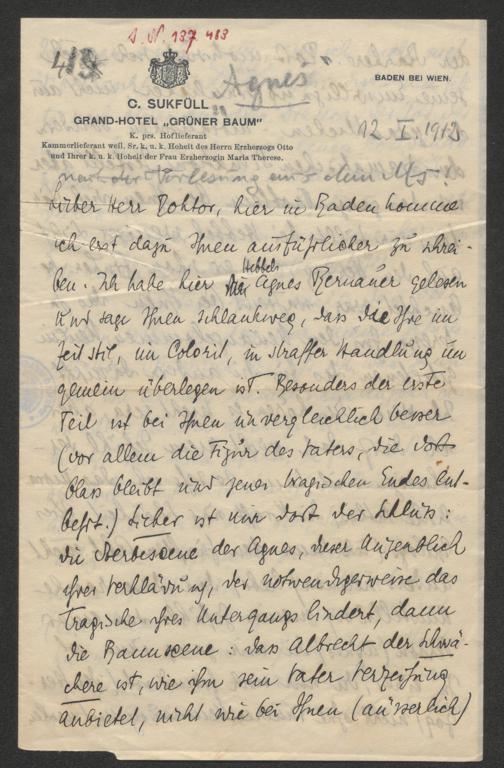 S. N. 137 483
419
Agnes
BADEN BEI WIEN.
C. SUKFÜLL
GRAND-HOTEL „GRÜNER BAUM“
K. prs. Hoflieferant
Kammerlieferant weil. Sr. k. u. k. Hoheit des Herrn Erzherzogs Otto
und Ihrer k. u. k. Hoheit der Frau Erzherzogin Maria Therese.
12 I. 1912
nach der Vorlesung aus dem Ms.
Lieber Herr Doktor, hier in Baden komme
ich erst dazu Ihnen ausführlicher zu schrei-
ben. Ich habe hier Hebbels Agnes Bernauer gelesen
und sage Ihnen schlankweg, dass die Ihre im
Zeitstil, im Colorit, in straffer Handlung un
gemein überlegen ist. Besonders der erste
Teil ist bei Ihnen unvergleichlich besser
(vor allem die Figur des Vaters, die dort
blass bleibt und jenes tragischen Endes ent-
behrt.) Sicher ist nur dort der Schluss:
die Sterbescene der Agnes, dieser Augenblick
ihrer Verklärung, der notwendigerweise das
Tragische ihres Untergangs lindert, dann
die Bannscene: dass Albrecht der Schwä-
chere ist, wie ihm sein Vater Verzeihung
anbietet, nicht wie bei Ihnen (äusserlich)